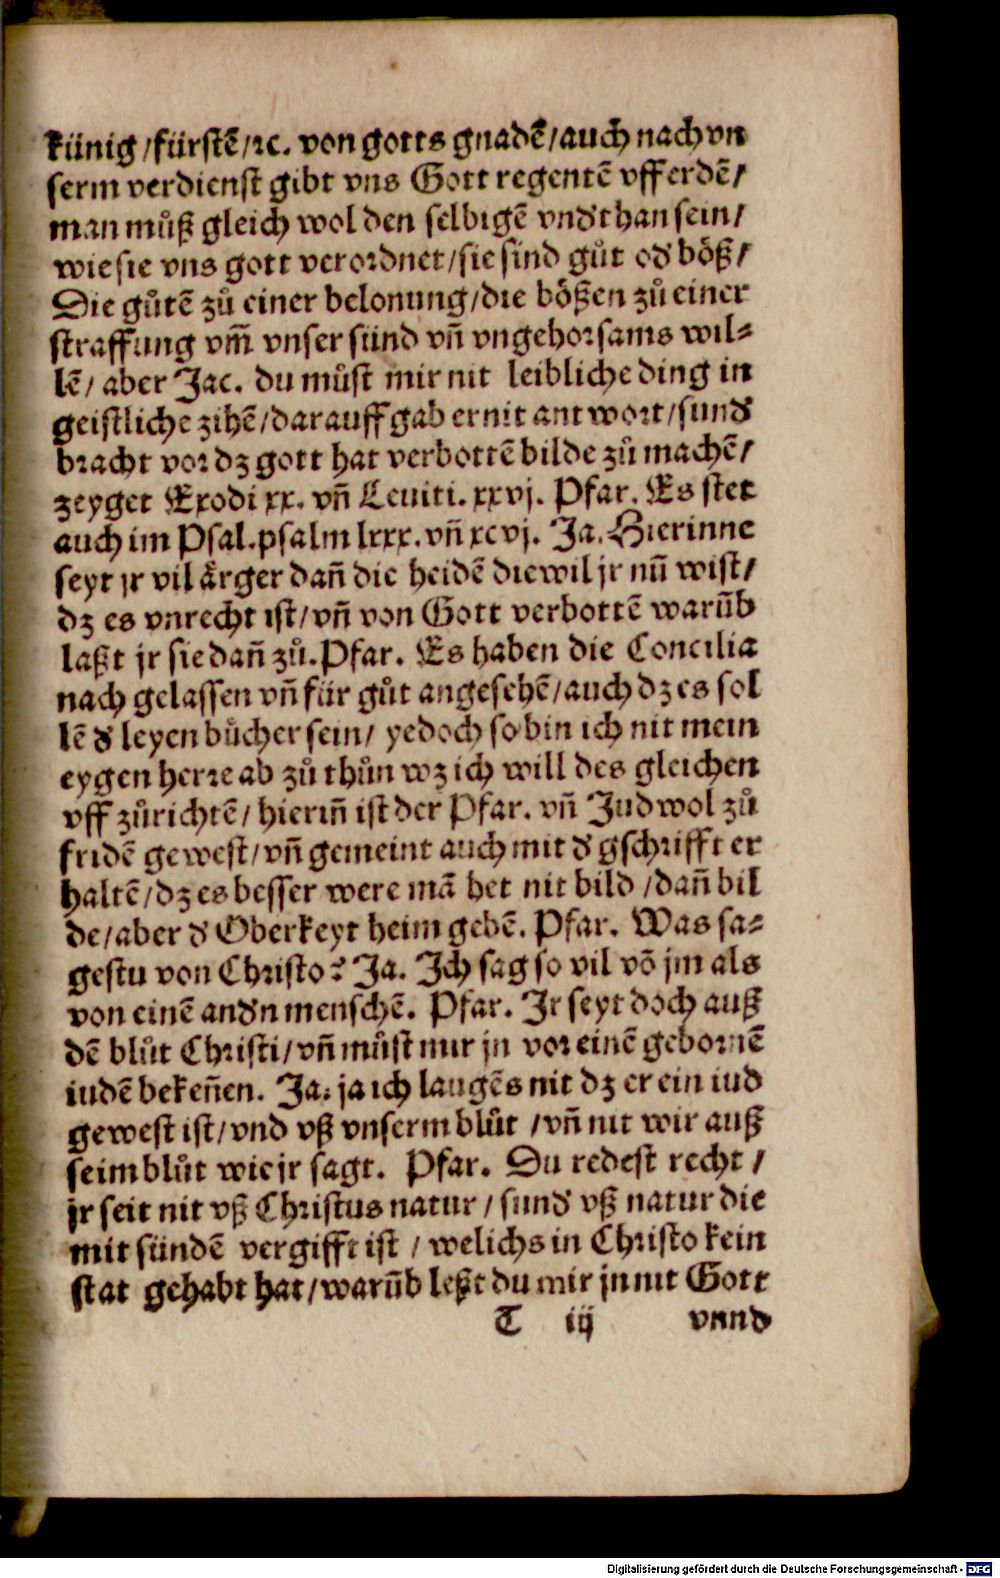 künig/fürstẽ/ꝛc. von gotts gnadẽ/auch nach vn
serm verdienst gibt vns Gott regentẽ vff erdẽ/
man můß gleich wol den selbigẽ vndʼthan sein/
wie sie vns gott verordnet/sie sind gůt odʼ böß/
Die gůtẽ zů einer belonung/die bößen zů einer
straffung vm̃ vnser sünd vñ vngehorsams wil⸗
lẽ/ aber Jac. du můst mir nit leibliche ding in
geistliche zihẽ/darauff gab er nit antwort/sundʼ
bracht vor dz gott hat verbottẽ bilde zů machẽ/
zeyget Exodi xx. vñ Leuiti. xxvj. Pfar. Es stet
auch im Psal.psalm lxxx. vñ xcvj. Ja. Hierinne
seyt jr vil ärger dañ die heidẽ die wil jr nũ wist/
dz es vnrecht ist/vñ von Gott verbottẽ warũb
laßt jr sie dañ zů. Pfar. Es haben die Concilia
nach gelassen vñ für gůt angesehẽ/auch dz es sol
lẽ dʼ leyen bůcher sein/ yedoch so bin ich nit mein
eygen herre ab zů thůn wz ich will des gleichen
vff zůrichtẽ/ hieriñ ist der Pfar. vñ Jud wol zů
fridẽ gewest/vñ gemeint auch mit dʼ gschrifft er
haltẽ/dz es besser were mã het nit bild /dañ bil
de/aber dʼ Oberkeyt heim gebẽ. Pfar. Was sa⸗
gestu von Christo? Ja. Jch sag so vil võ jm als
von einẽ andʼn menschẽ. Pfar. Jr seyt doch auß
dẽ blůt Christi/vñ můst nur jn vor einẽ gebornẽ
iudẽ bekeñen. Ja: ja ich laugẽs nit dz er ein iud
gewest ist/vnd vß vnserm blůt /vñ nit wir auß
seim blůt wie jr sagt. Pfar. Du redest recht /
jr seit nit vß Christus natur / sundʼ vß natur die
mit sündẽ vergifft ist / welichs in Christo kein
stat gehabt hat/warũb leßt du mir jn nit Gott
T iij vnnd
Digitalisierung gefördert durch die Deutsche Forschungsgemeinschaft - DFG